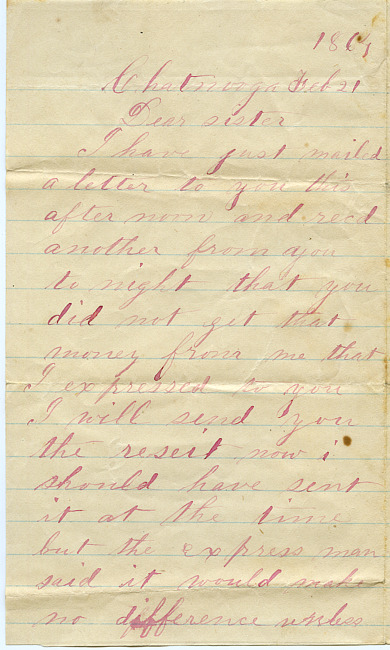 186
Chatnooga Feb 21
Dear sister
I have just mailed
a letter to you this
after noon and recd
another from you
to night that you
did not get that
money from me that
I expressed to you
I will send you
the reseit now i
should have sent
it at the time
but the express man
said it would make
no difference unless